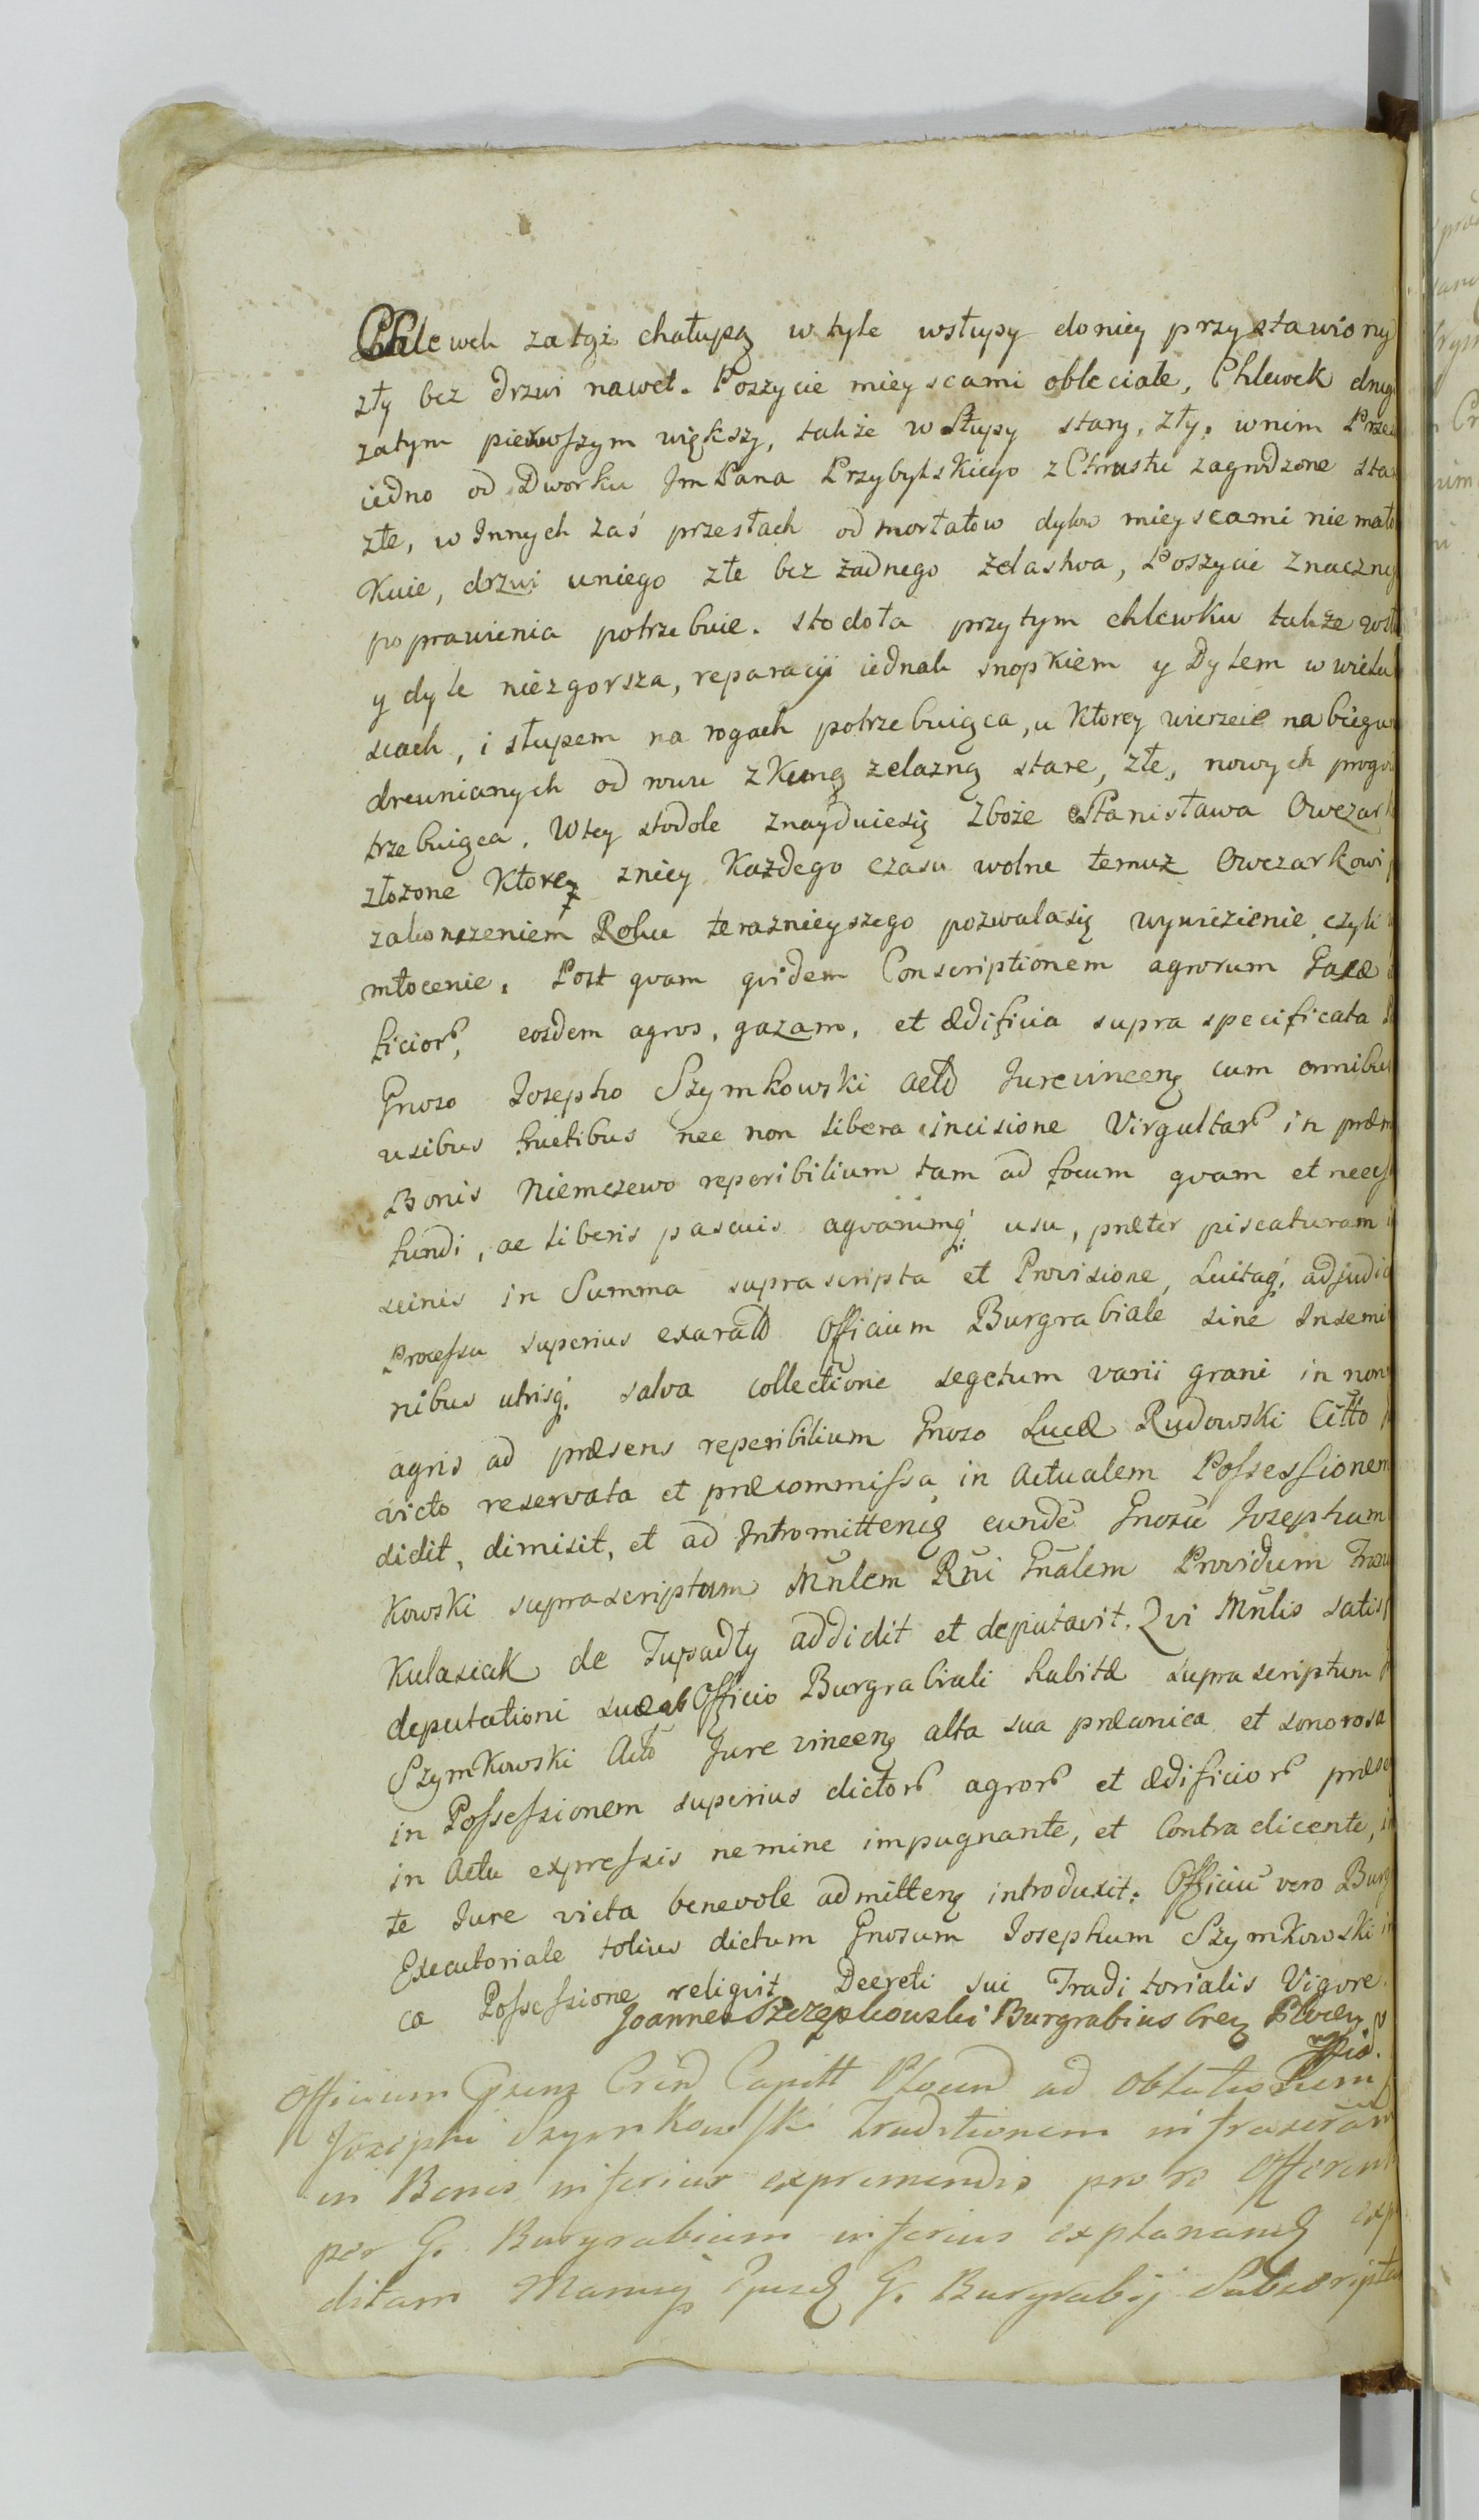 Chlewek zatąż chałupą w tyle wsłupy doniey przystawiony
zły bez drzwi nawet. Poszycie mieyscami obleciałe, Chlewek drug
zatym pierwszym większy, także w słupy stary, zły, wnim Przę
iedno od Dworku Jm Pana Przybylskiego z Chrustu zagrodzone sta
złe, w Innych zaś przesłach od morłatow dylow mieyscami nie mało
Kuie, drzwi uniego złe bez żadnego żelastwa, Poszycie znaczneg
poprawienia potrzebuie. stodoła przytym chlewku także wsł
y dyle niezgorsza, reparacyi iednak snopkiem y Dylem w wielu
scach, i słupem na rogach potrzebuiąca, u Ktorey wierzeie na biegun
drewnianych od rowu z Kuną żelazną stare, złe, nowych progow
trzebuiąca. W tey stodole znayduiesię Zboże Stanisława Owczark
złożone Ktore zniey Każdego czasu wolne temuż Owczarkowi p
zakonczeniem Roku teraznieyszego pozwalasię wywiezienie, czyli
młocenie. Post qvam qvidem Conscriptionem agrorum Gazæ
ficior, eosdem agros, gazam, et Ædificia supra specificata
Gnoso Josepho Szymkowski Actō Jurevincenę cum omnibus
usibus fructibus nec non libera incisione Virgultar in præm
Bonis Niemczewo reperibilium tam ad focum qvam et necess
fundi, ac liberis pascuis aqvarumq́ usu, præter piscaturam
scinis in Summa suprascripta et Provisione, Luitaq́, adjudic
Processu superius exarato Officium Burgrabiale sine Insemi
nibus utrisq́. salva collectione segetum varii grani in non
agris ad præsens reperibilium Gnoso Lucæ Rudowski Citto
victo reservata et præcommissa in Actualem Possessionem
didit, dimisit, et ad Intromittenę eundē Gnosū Josephum
Kowski suprascriptum Mnlem Rni Gnalem Providum Fran
Kulasiak de Tupadły addidit et deputavit. Qvi Mnlis satis
deputationi suæ ab Officio Burgrabiali habitæ suprascriptum
Szymkowski Actō Jure vincenę alta sua præconica et sonorosa
in Possessionem superius dictor agror et ædificior præsen
in Actu expressis nemine impugnante, et Contradicente,
te Jure victa benevole admittenę introduxit. Officiū vero Burg
Executoriale totius dictum Gnosum Josephum Szymkowski in
ca Possessione religvit, Decreti sui Traditorialis Vigore.
Joannes Szczepkowski Burgrabius Cren Plocen
Officium Grens Crend Capitt Plocend ad oblationem
Josephi Szymkowski Traditionem infrascrām
in Bonis inferius exprimendis pro re offerent
per G. Burgrabium inferius explanand exp
ditam Manuq́ Ejusd G. Burgrabij Subscript